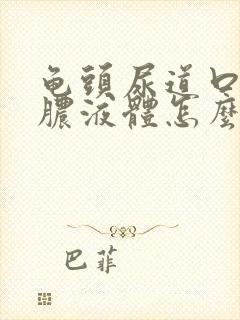 龟頭尿道口
膿液體怎麼
巴菲